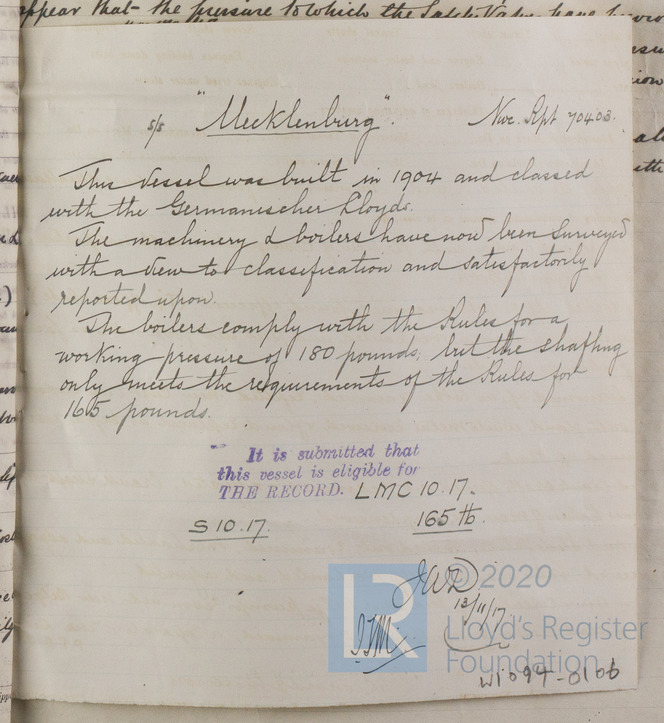 appear that the pressure to which the Safety Valves have
s/s "Mecklenburg". Nwc. Rpt 70403.
This vessel was built in 1904 and classed
with the Germanischer Lloyds.
The machinery & boilers have now been surveyed
with a view to classification and satisfactorily
reported upon.
The boilers comply with the Rules for a
working pressure of 180 pounds, but the shafting
only meets the requirements of the Rules for
165 pounds.
It is submitted that
this vessel is eligible for
THE RECORD. LMC 10.17.
S 10.17. 165 lb.
© 2020
13/11/17
LR
Lloyd's Register
Foundation
W1094-0106